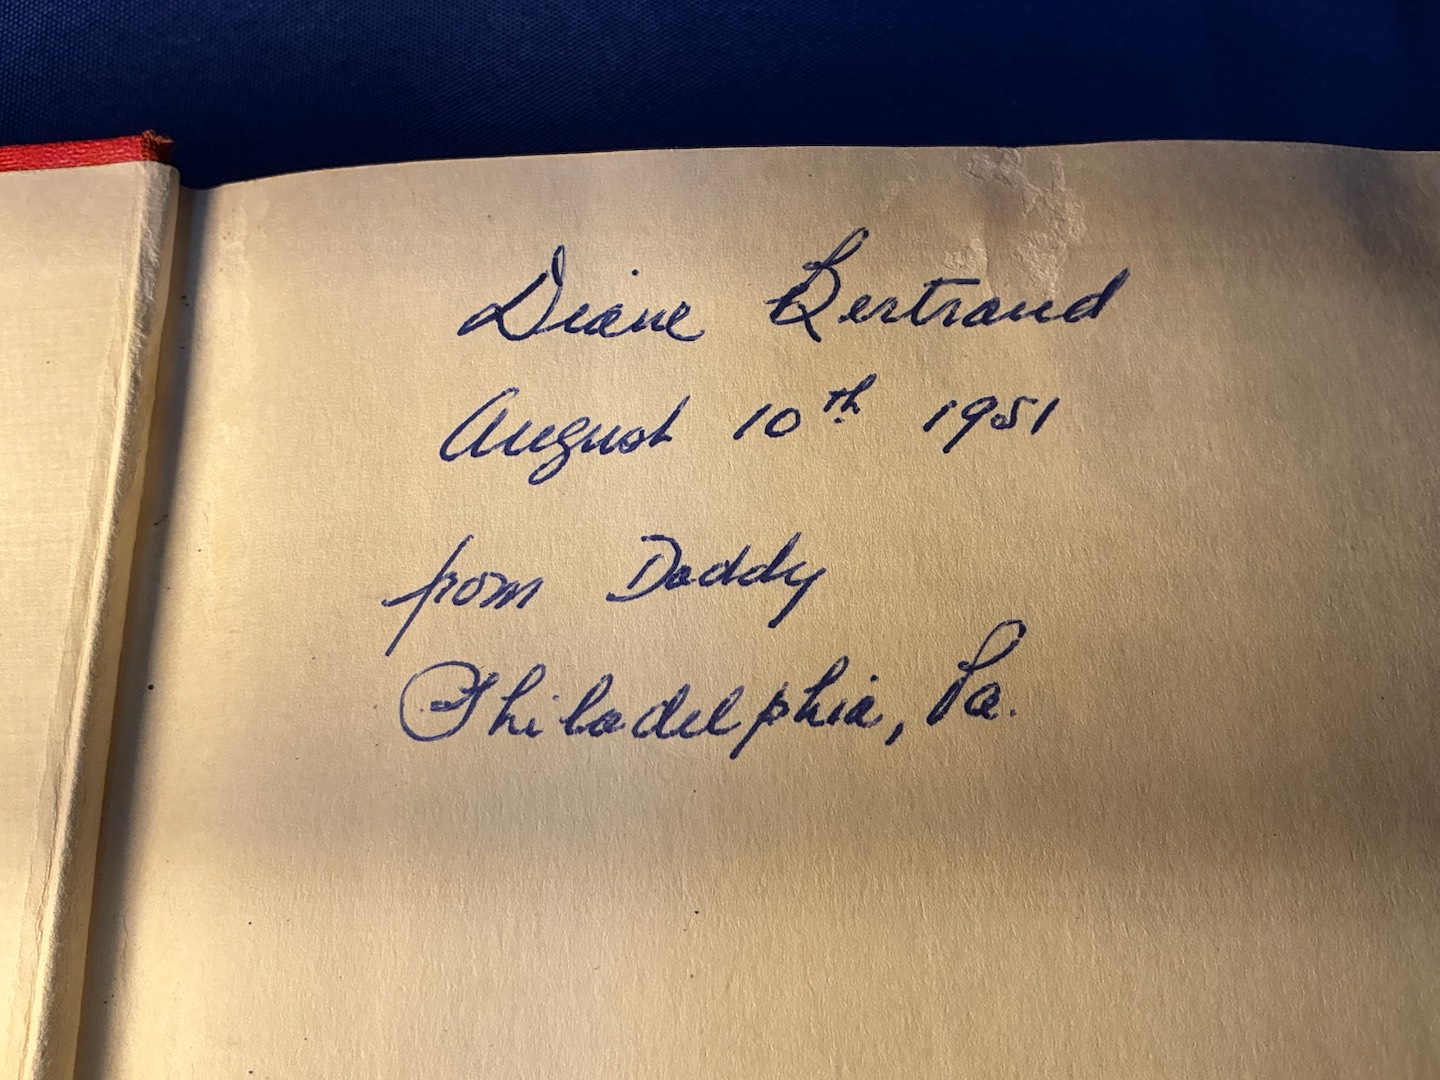 Diane Bertrand
August 10th 1951
from Daddy
Philadelphia, Pa.